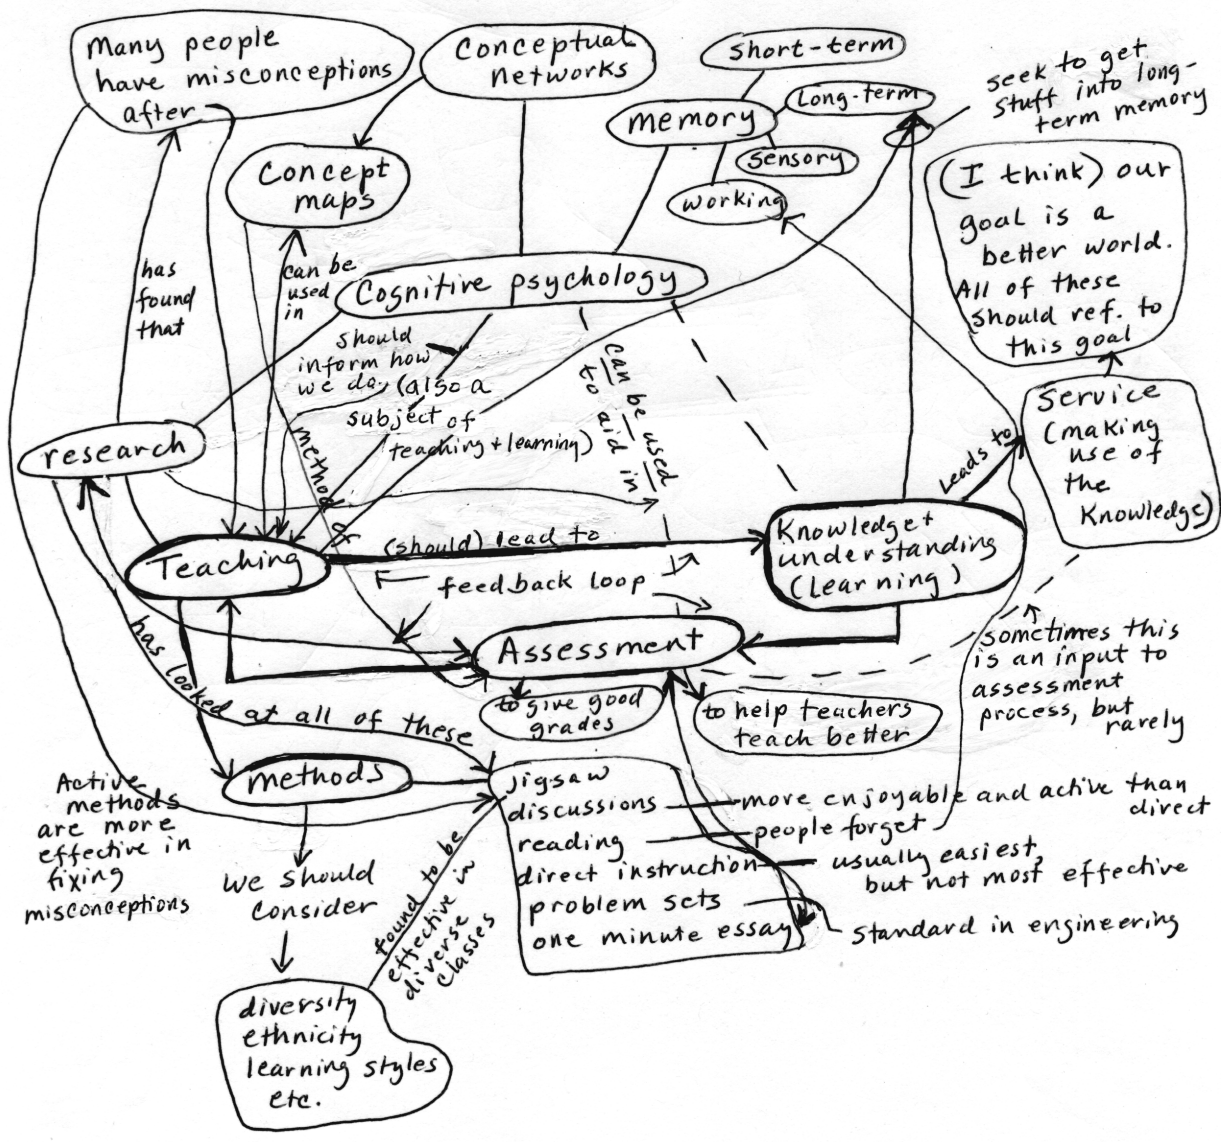 Many people
have misconceptions
after
Conceptual
networks
short-term
Long-term
memory
sensory
working
seek to get
stuff into long-
term memory
Concept
maps
(I think) our
goal is a
better world.
All of these
should ref. to
this goal
has
found
that
can be
used
in
Cognitive psychology
should
inform how
we do, (also a
subject of
teaching + learning)
can be used
to aid in
method of
research
Leads to
Service
(making
use of
the
Knowledge)
Teaching
(should) lead to
Knowledge +
understanding
(learning)
feedback loop
Assessment
sometimes this
is an input to
assessment
process, but
rarely
to give good
grades
to help teachers
teach better
has looked at all of these
methods
Active
methods
are more
effective in
fixing
misconceptions
jigsaw
discussions
more enjoyable and active than
direct
reading
people forget
direct instruction
usually easiest,
but not most effective
problem sets
one minute essay
standard in engineering
we should
consider
found to be
effective in
diverse
classes
diversity
ethnicity
learning styles
etc.